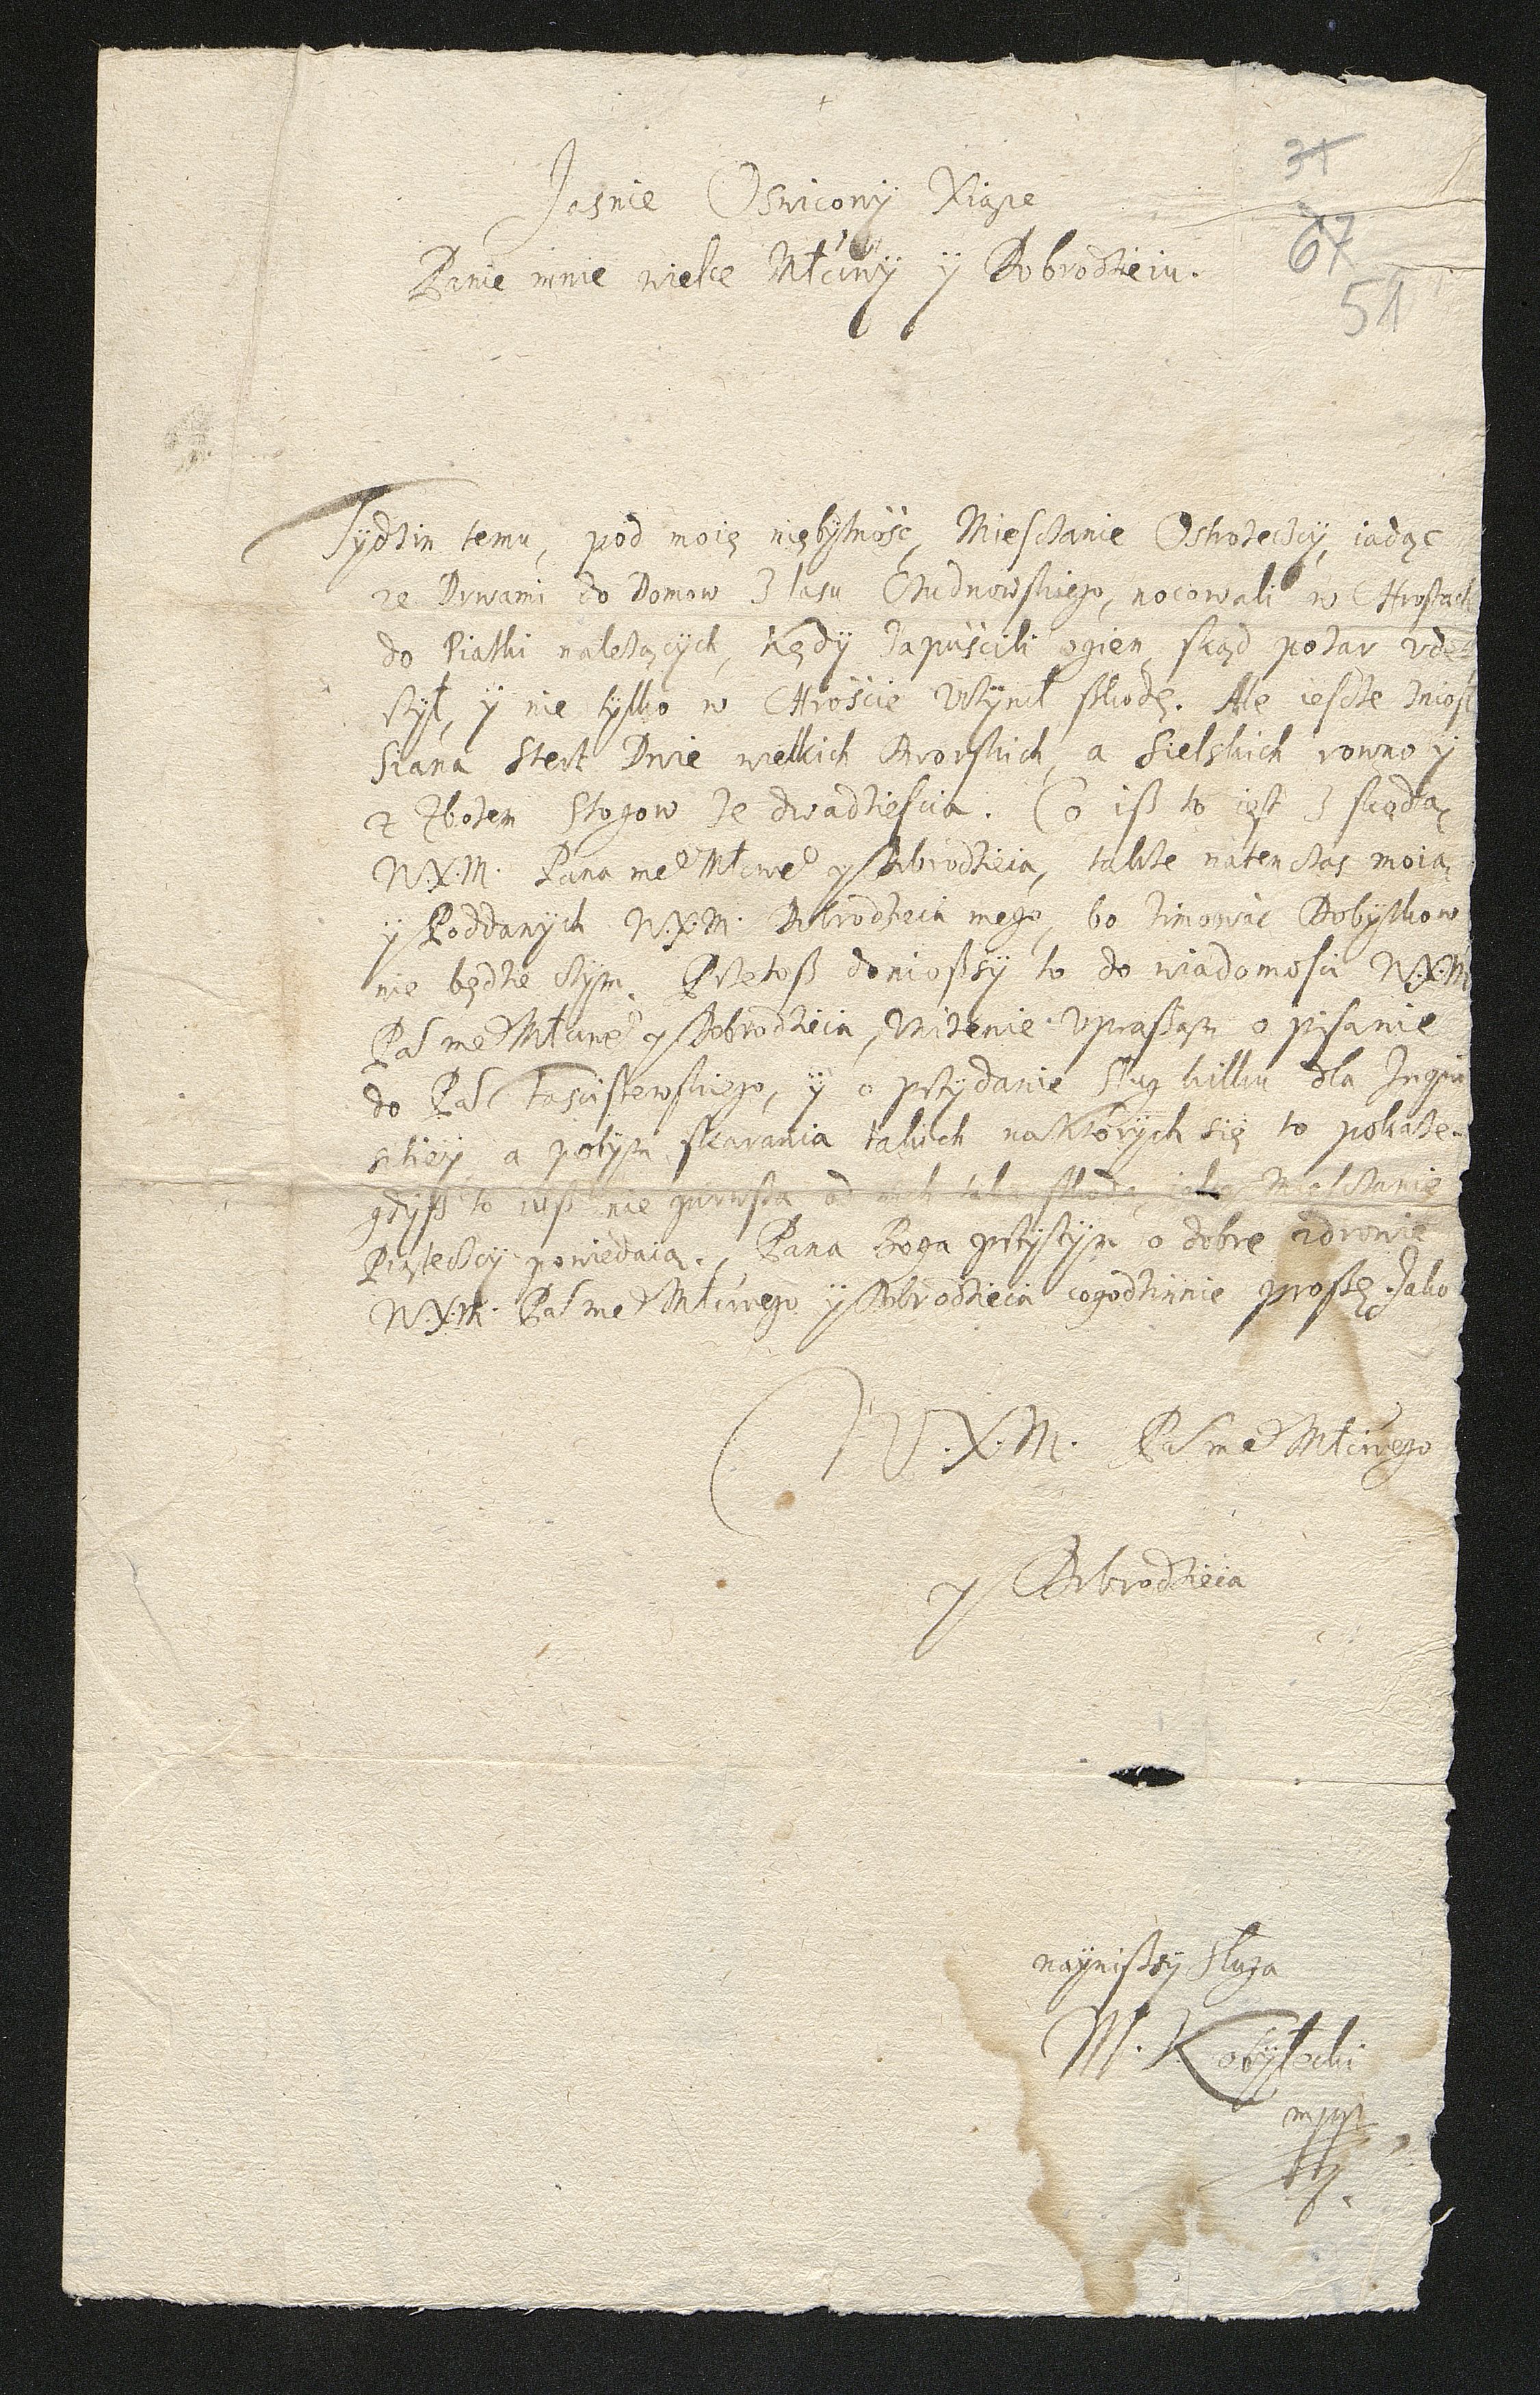 Jasnie Oswicony Xiąze
Panie mnie wielce Młciwy y Dobrodzieiu.
31
67
51
Tydzin temu, pod moię niębytnośc, Miesczanie Ostrozeczcy, iadąc
ze Drwami do Domow z lasu Cudnowskiego, nocowali w Chrostach
do Piatki nalezących, kędy zapuscili ogien, skąd pozar
szył, y nie tylko w Chroscie Uczynił szkodę. Ale iescze zniosł
Siana Stert Dwie wielkich Dworskich, a Sielskich rowno y
z Zbozem Stogow ze dwadziescia. Co iß to iest z skodą
W.X.M. Pana meº Młcweº y Dobrodzieia, takze natenczas moią
y Poddanych W.X.M. Dobrodzieia mego, bo zimowac Dobytkow
nie będzie czym. Przetoß donioßsy to do wiadomosci W.X.M
Pas meº Młciweº y Dobrodzieia, Unizenie Upraßam o pisanie
do Pas Lascißewskiego, y o przydanie Sług kilku dla Inqui
sitiey, a potym skarania takich naktorych się to pokaze.
gdyß to iuß nie pirwsza od nich taka skoda, iako Miesczanie
Piąteczcy powiedaią. Pana Boga przytym o dobre zdrowie
W.X.M. Pas meº Młciwego y Dobrodzieia cogodzinnie proßę. Jako
W.X.M. Pas meº Młciwego
y Dobrodzieia
naynißsy Sługa
M. Kobyłecki
mpp